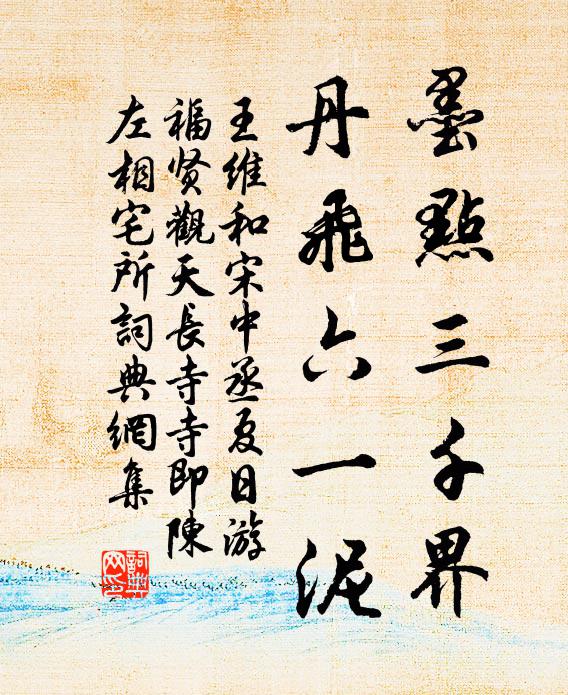 墨點三千界
丹飛六一泥
王維和宋中丞夏日游
福贤觀天長寺寺即陳
左相宅所詞典網集
詞典网印